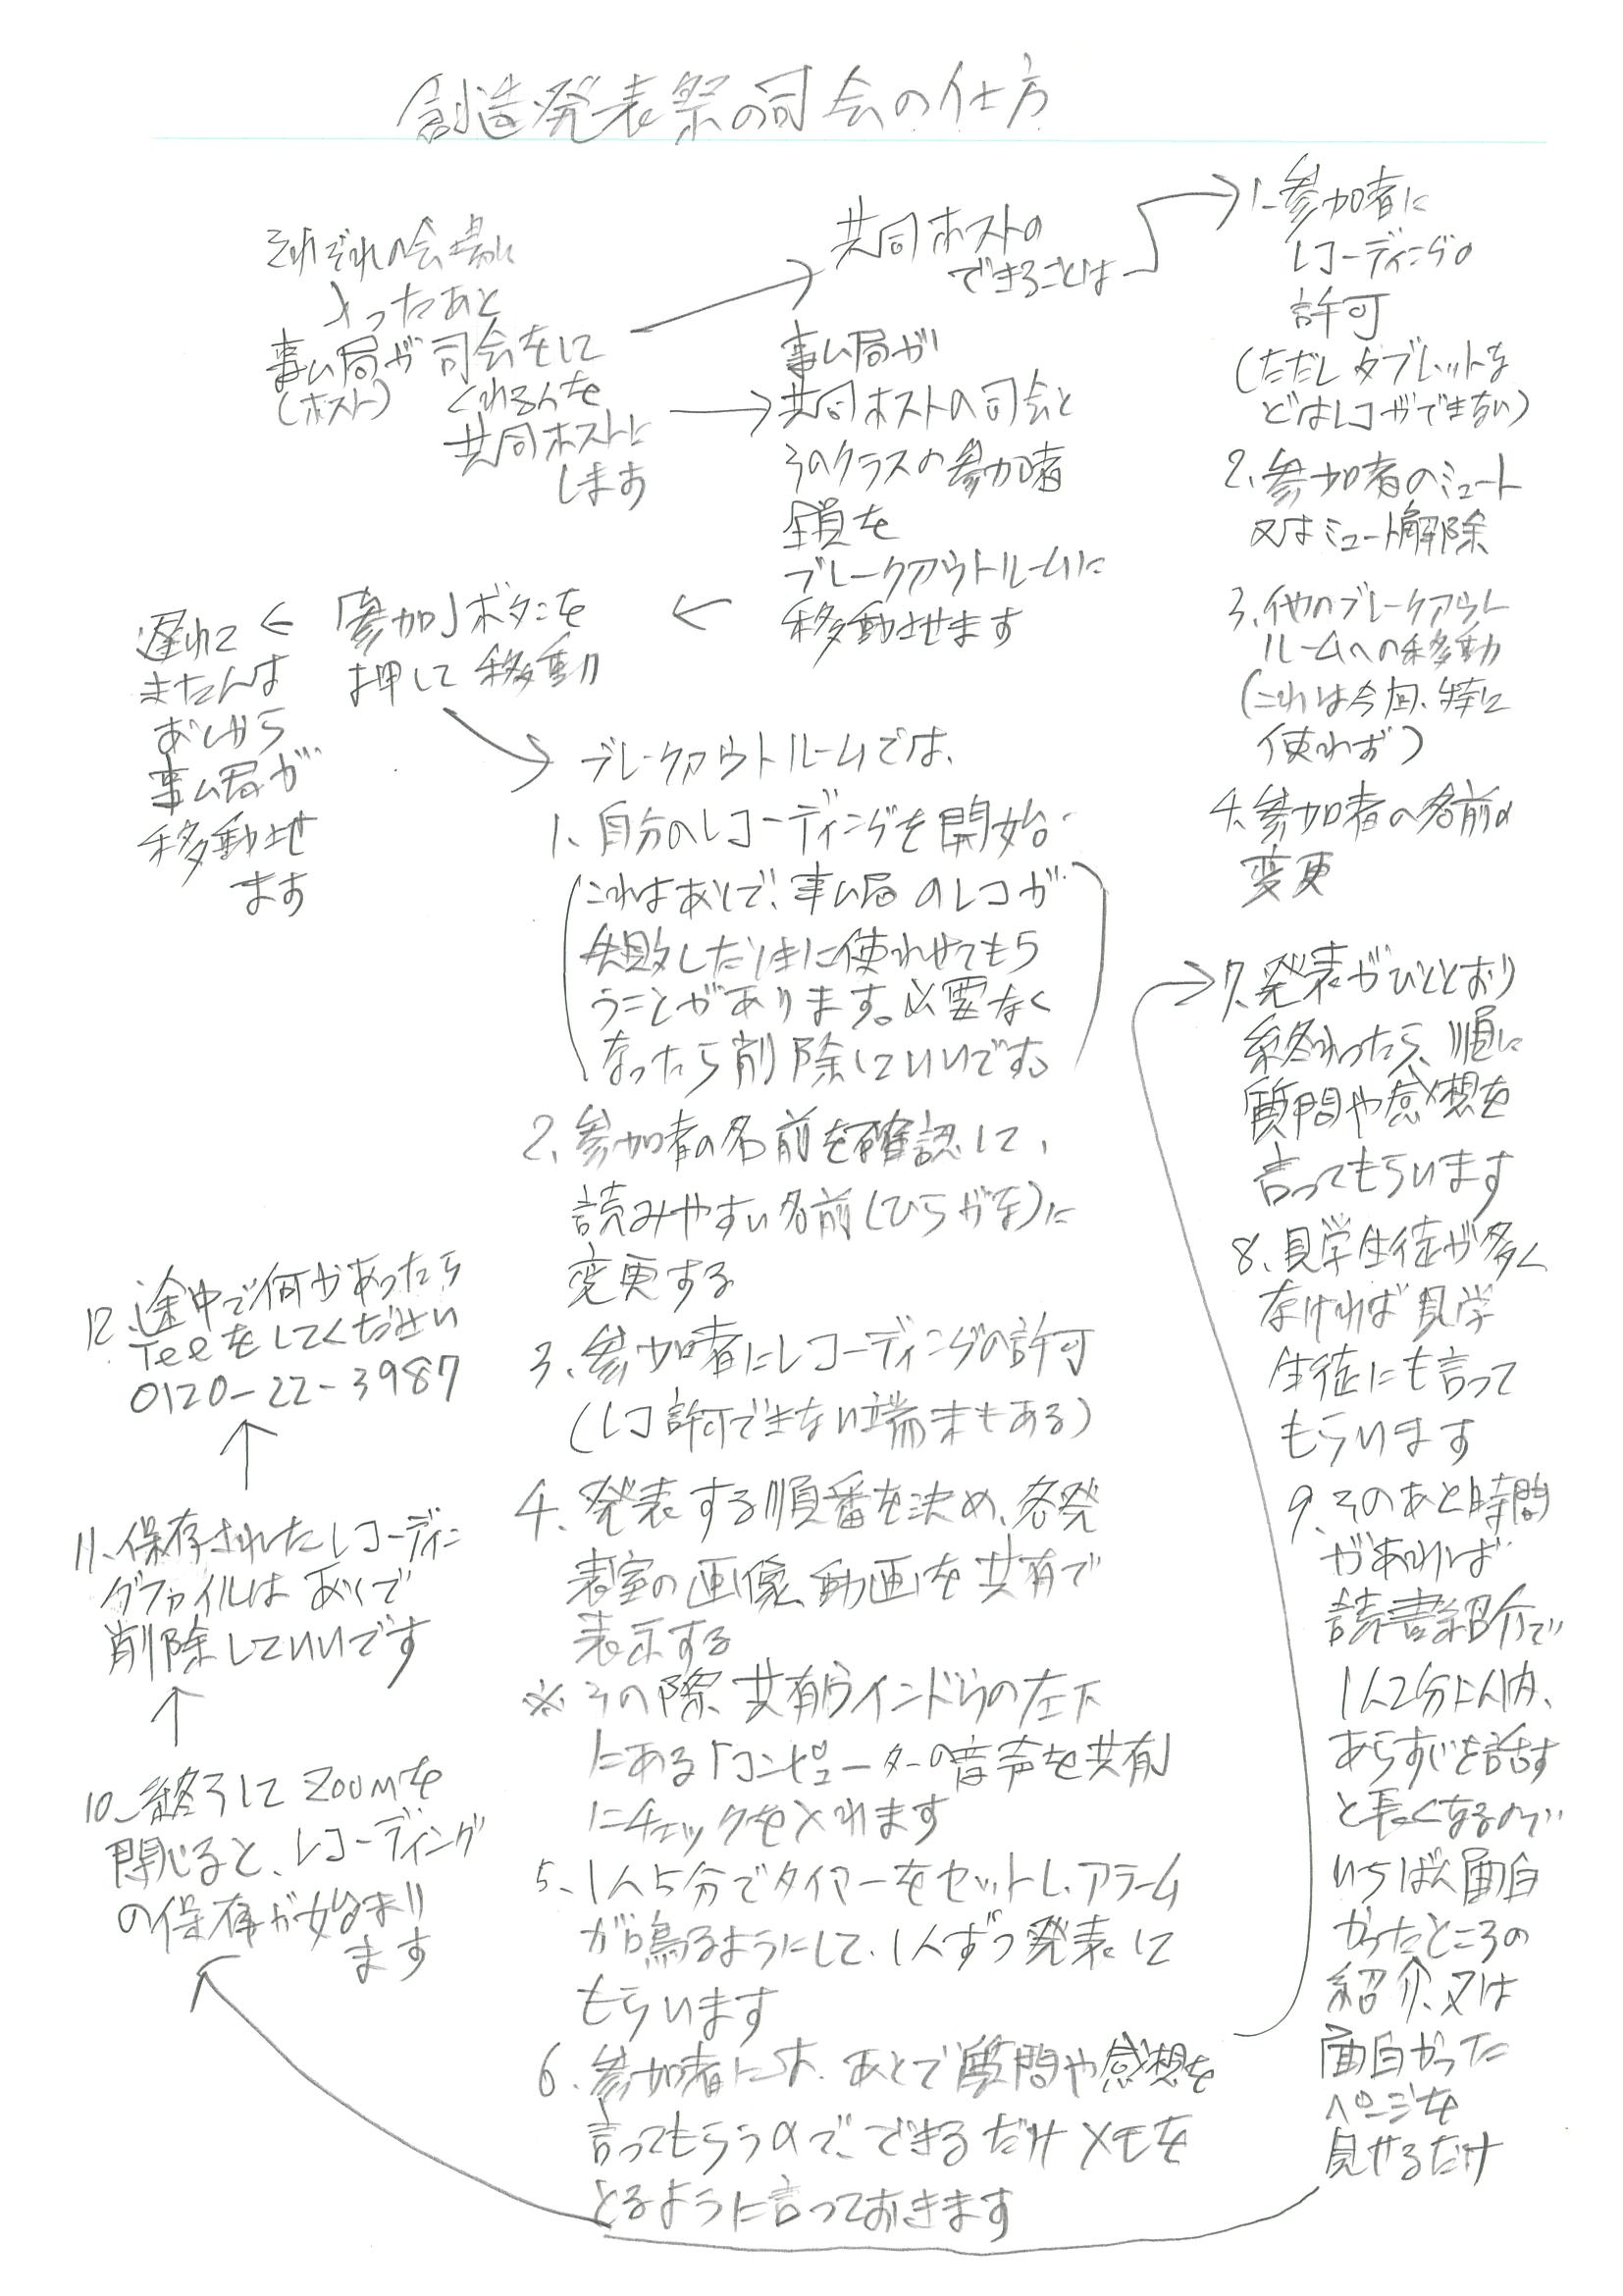 創造発表祭の司会の仕方
それぞれの会場に
入ったあと
事ム局が司会をして
(ホスト)
くれる人を
共同ホストに
します
共同ホストの
できることは
1. 参加者に
レコーディングの
許可
(ただしタブレットな
どはレコができない)
2. 参加者のミュート
又はミュート解除
3. 他のブレークアウト
ルームへの移動
(これは今回、特に
使わず)
4. 参加者の名前の
変更
事ム局が
共同ホストの司会と
そのクラスの参加者
全員を
ブレークアウトルームに
移動させます
「参加」ボタンを
押して移動
遅れて
きた人は
あとから
事ム局が
移動させ
ます
ブレークアウトルームでは、
1. 自分のレコーディングを開始
(これはあとで、事ム局のレコが
失敗したときに使わせてもら
うことがあります。必要なく
なったら削除していいです。)
2. 参加者の名前を確認して、
読みやすい名前(ひらがな)に
変更する
3. 参加者にレコーディングの許可
(レコ許可できない端末もある)
4. 発表する順番を決め、各発
表室の画像、動画を共有で
表示する
※ その際、共有ウインドウの左下
にある「コンピューターの音声を共有」
にチェックを入れます
5. 1人5分でタイマーをセットし、アラーム
が鳴るようにして、1人ずつ発表して
もらいます
6. 参加者には、あとで質問や感想を
言ってもらうので、できるだけメモを
とるように言っておきます
7. 発表がひととおり
終わったら、順に
質問や感想を
言ってもらいます
8. 見学生徒が多く
なければ見学
生徒にも言って
もらいます
9. そのあと時間
があれば
読書紹介で
1人2分以内、
あらすじを話す
と長くなるので
いちばん面白
かったところの
紹介、又は
面白かった
ページを
見せるだけ
10. 終了してZoomを
閉じると、レコーディング
の保存が始まり
ます
11. 保存されたレコーディン
グファイルはあとで
削除していいです
12. 途中で何かあったら
Telをしてください
0120-22-3987